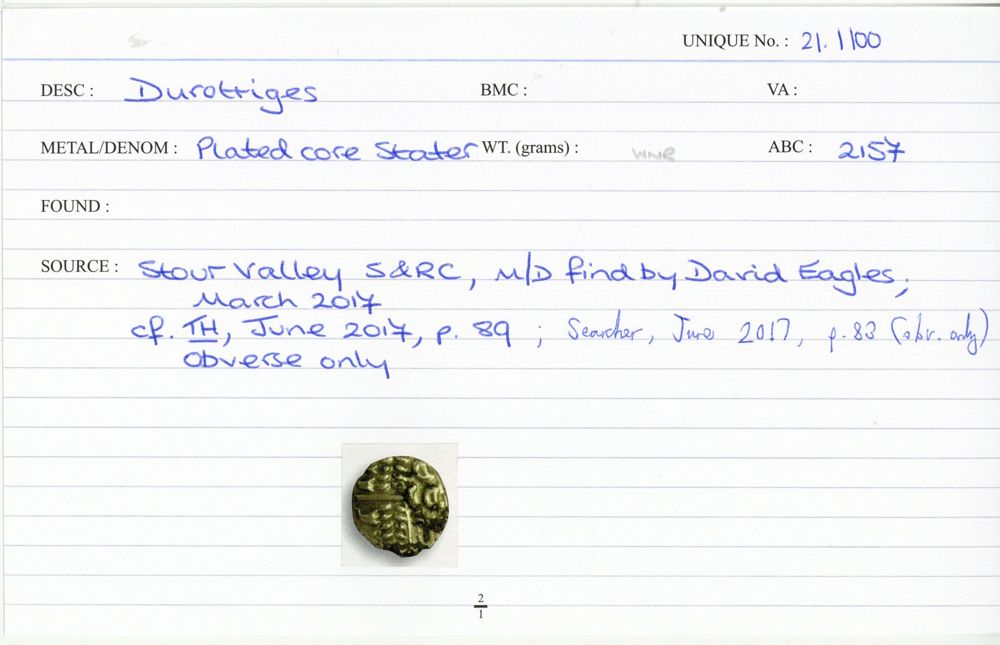 UNIQUE No. : 21.1100
DESC : Durotriges BMC : VA :
METAL/DENOM : Plated core Stater WT. (grams) : WNR ABC : 2157
FOUND :
SOURCE : Stour Valley S&RC, M/D find by David Eagles,
March 2017
cf. TH, June 2017, p. 89 ; Searcher, June 2017, p. 83 (obv. only)
Obverse only
2
1